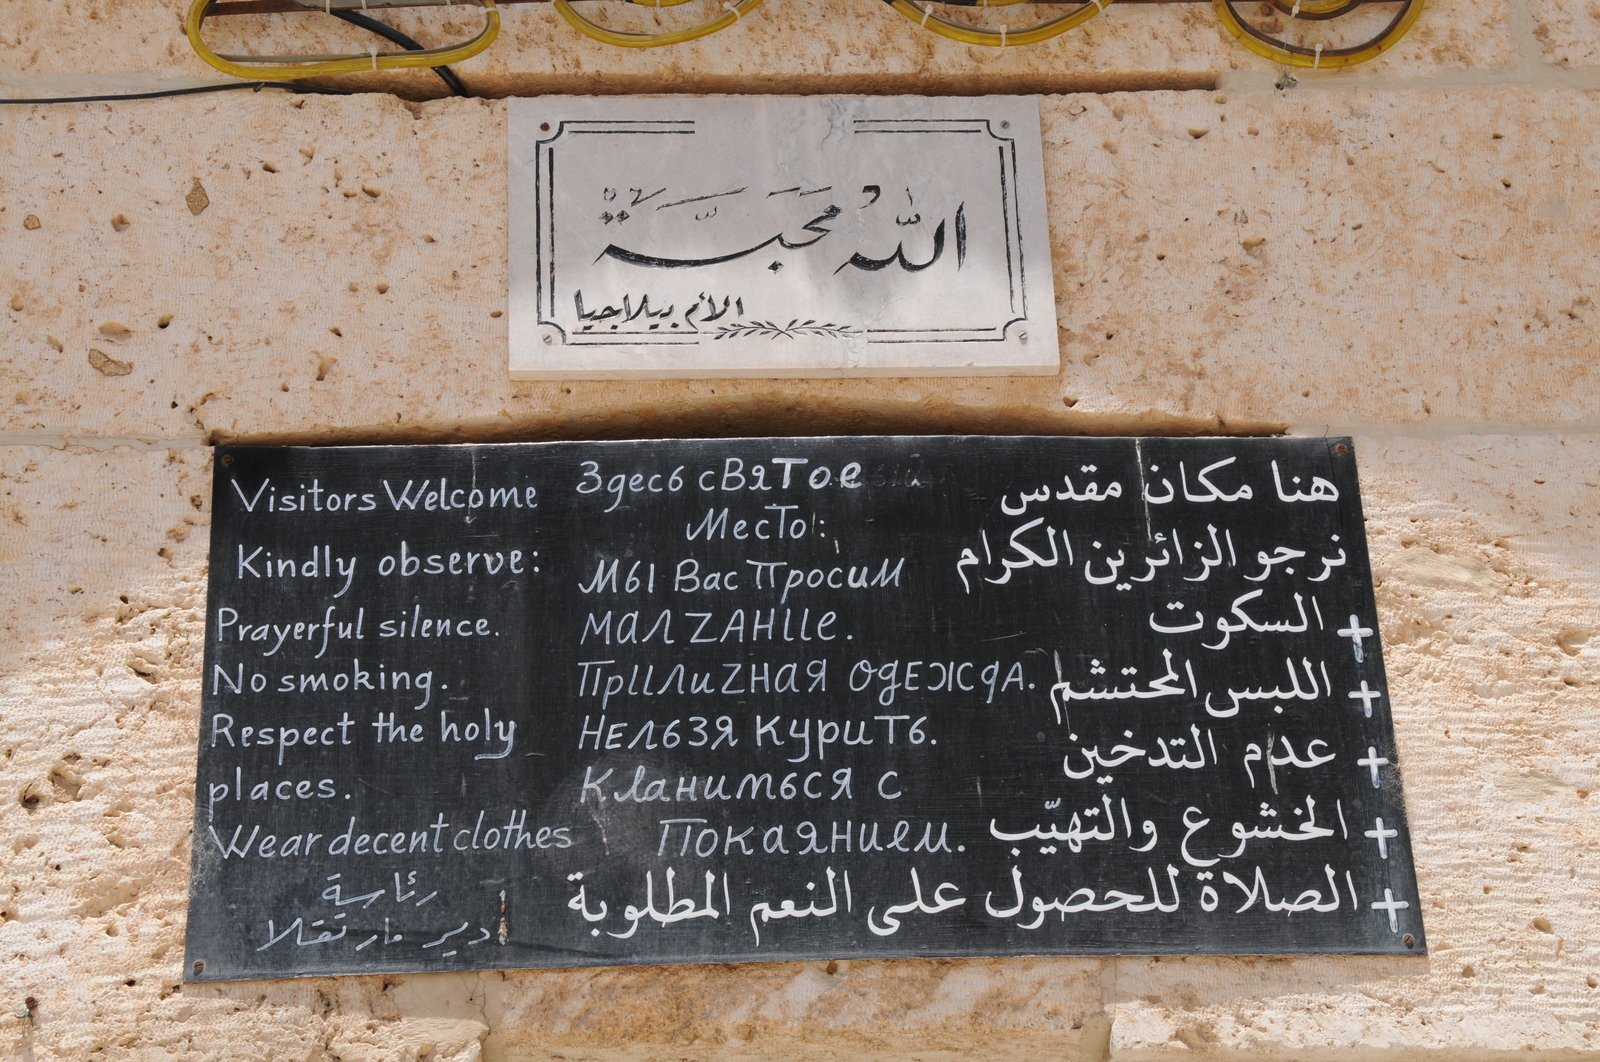 الله محبة
الأم بيلاجيا
Visitors Welcome
Kindly observe:
Prayerful silence.
No smoking.
Respect the holy
places.
Wear decent clothes
رئاسة
دير مار تقلا
Здесь святое
Место:
Мы Вас Просим
МАЛZАНIIе.
ПрIIлиZная одежда.
Нельзя курить.
Кланиться с
Покаянием.
هنا مكان مقدس
نرجو الزائرين الكرام
+ السكوت
+ اللبس المحتشم
+ عدم التدخين
+ الخشوع والتهيّب
+ الصلاة للحصول على النعم المطلوبة